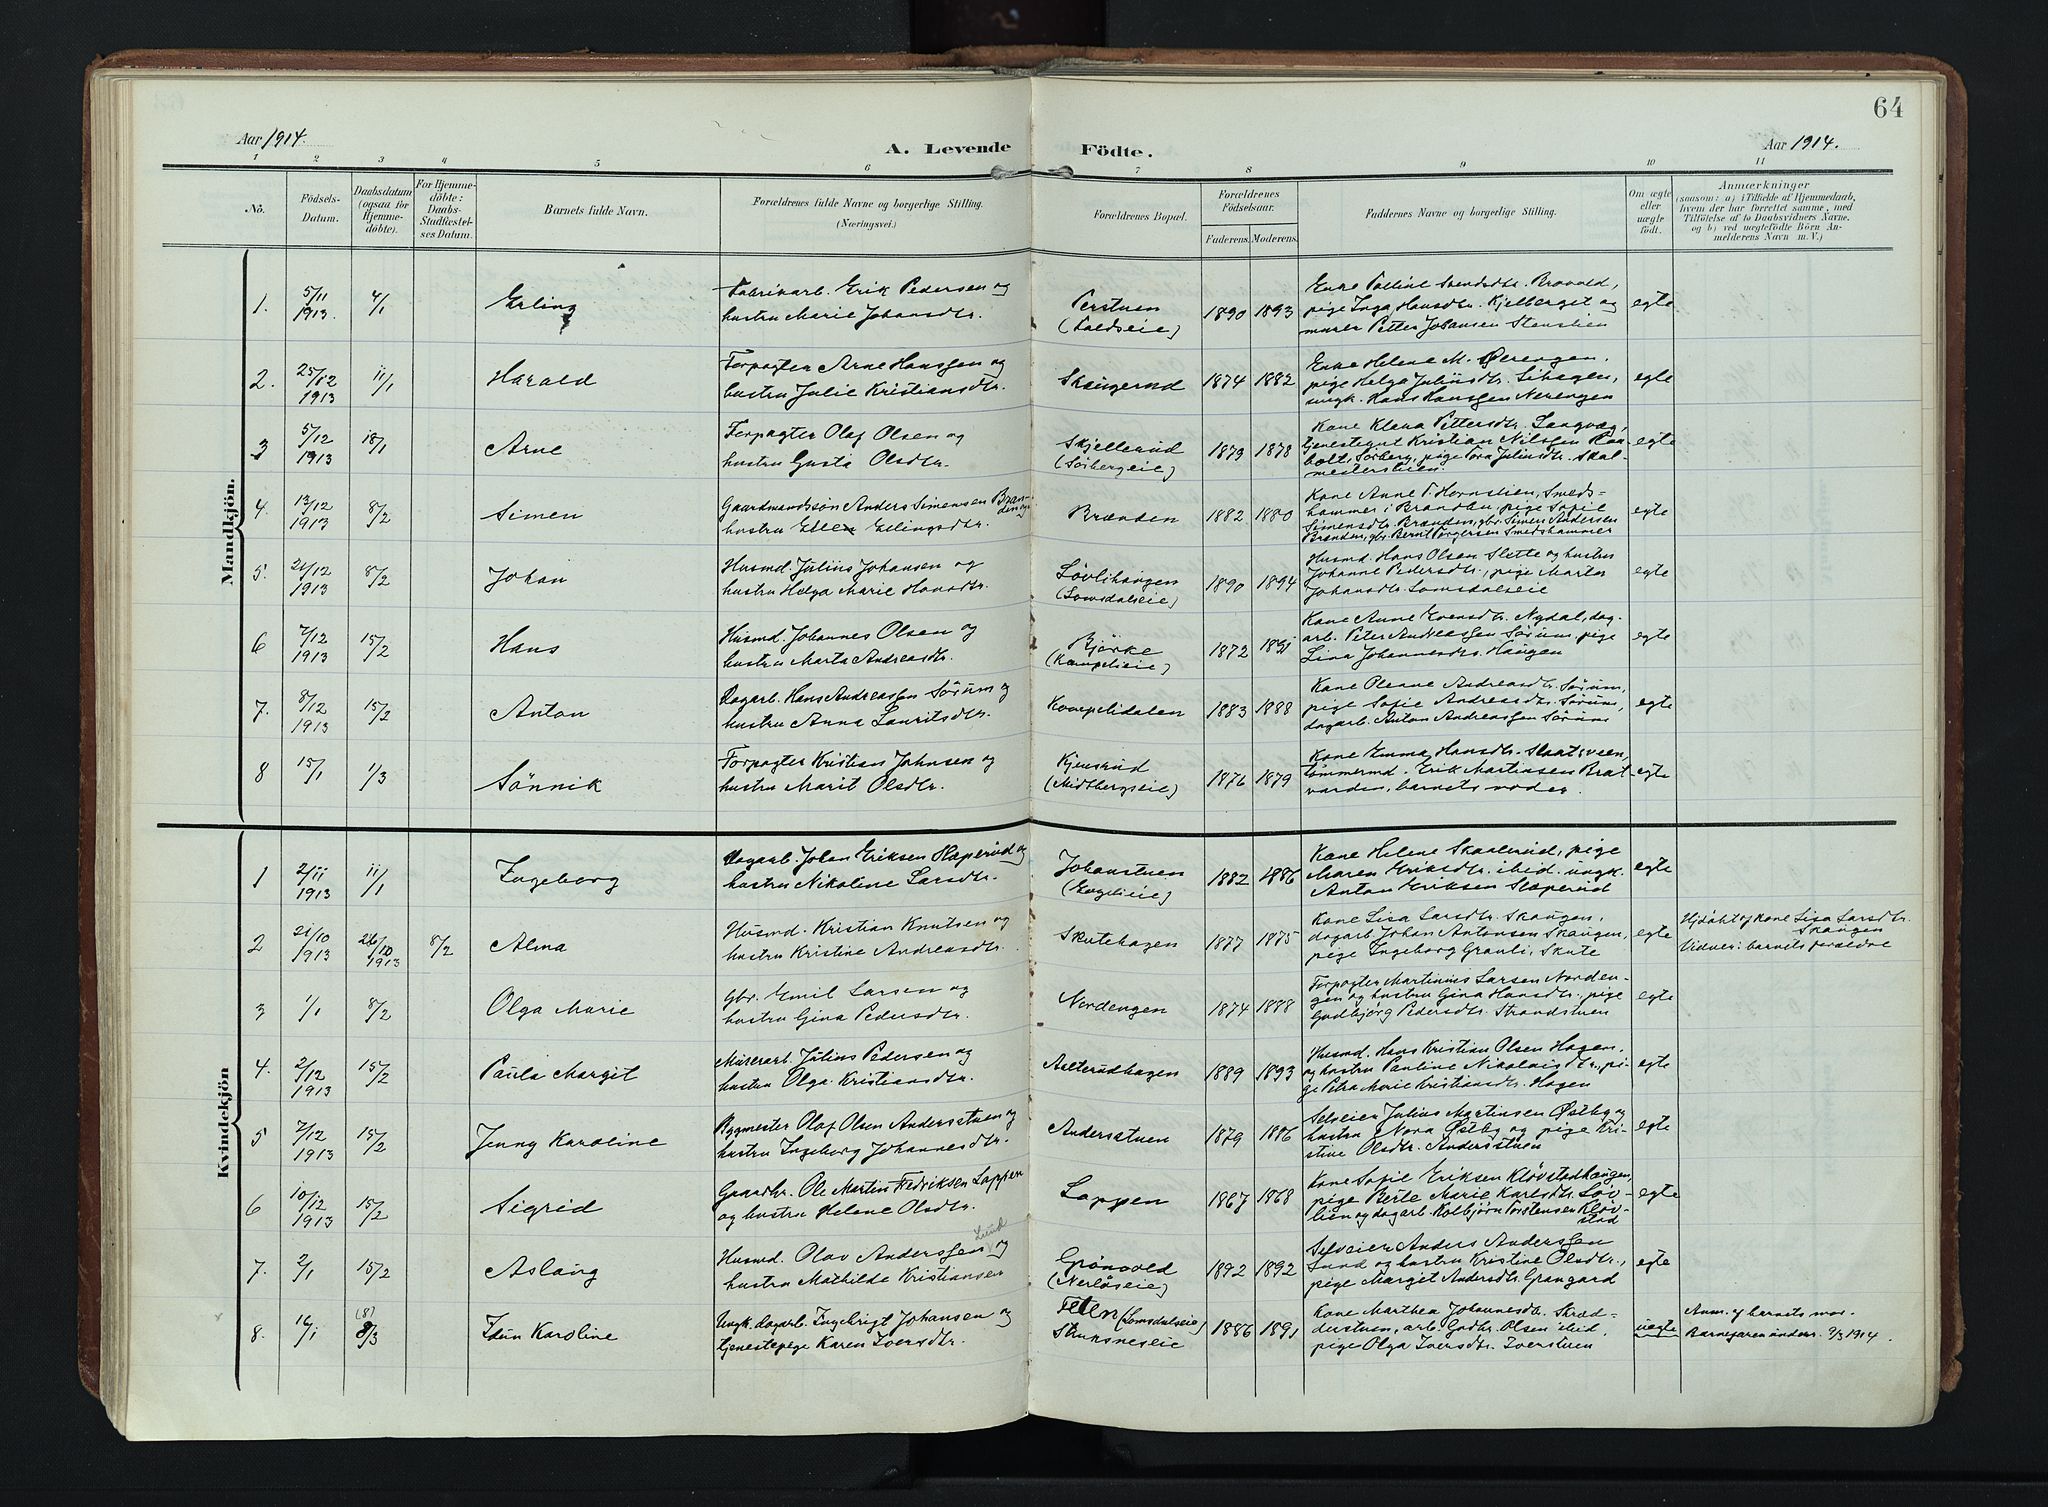 64
Aar 1914.
A. Levende Födte.
Aar 1914.
1 2 3 4 5 6 7 8 9 10 11
No.
Födsels-
Datum.
Daabsdatum
(ogsaa for
Hjemme-
döbte).
For Hjemme-
döbte:
Daabs-
Stadfæstel-
ses Datum.
Barnets fulde Navn.
Forældrenes fulde Navne og borgerlige Stilling.
(Næringsvei.)
Forældrenes Bopæl.
Forældrenes
Födselsaar.
Faderens. Moderens.
Faddernes Navne og borgerlige Stilling.
Om ægte
eller
uægte
födt.
Anmærkninger
(saasom: a) i Tilfælde af Hjemmedaab,
hvem der har forrettet samme, med
Tilföielse af to Daabsvidners Navne.
og b) ved uægtefödte Börn An-
melderens Navn m. V.)
Mandkjön.
1. 5/11 1913. 4/1 Erling
Fabrikarb. Erik Pedersen og
hustru Marie Johansdtr.
Perstuen
1890 1893
pige Inga Hansdtr. Kjelberget og
murer Petter Johansen Stenslien
egte
2. 25/12 1913 11/1 Harald
Forpagter Arne Hanssen og
hustru Julie Kristiansdtr.
Skaugerud
1874 1882
Enke Helene M. Ørengen,
pige Helga Juliusdtr. Lihagen,
ungk. Hans Hanssen Nerengen
egte
3 5/12 1913 18/1 Arne
Forpagter Olaf Olsen og
hustru Gusta Olsdtr.
Skjellerud
(Sørbergseie)
1879 1878
Kone Klara Pettersdtr. Langvæg,
tjenestegut Kristian Nilssen Ram-
bolt, Sørberg, pige Tora Juliusdtr. Skol-
mesterstuen.
egte
4. 13/12 1913 8/2 Simen
Gaardmandssøn Anders Simensen Bræn-
den og
hustru Ellen Erlingsdtr.
Brænden
1882 1880
Kone Anne T. Hornslien, Smeds-
hammer i Brandbu, pige Sofie
Simensdtr. Brænden, gbr. Simen Andersen
Brænden, gbr. Bernt Torgersen Smedshammer
egte
5. 21/12 1913 8/2 Johan
Husmd. Julius Johansen og
hustru Helga Marie Hansdtr.
Løvlihaugen
(Lomsdalseie)
1890 1894
Husmd. Hans Olsen Slette og hustru
Johanne Pedersdtr., pige Marta
Johansdtr. Lomsdalseie
egte
6 7/12 1913 15/2 Hans
Husmd. Johannes Olsen og
hustru Marta Andreasdtr.
Bjørke
(Kompelieie)
1872
Kone Anne Evensdtr. Nydal, dag-
arb. Peter Andreassen Sørum, pige
Lina Johannesdtr. Haugen
egte
7. 8/12 1913 15/2 Anton
Dagarb. Hans Andreassen Sørum og
hustru Anna Lauritsdtr.
Kompelidalen
1883 1888
Kone Oleane Andreasdtr. Sørum,
pige Sofie Andreasdtr. Sørum,
dagarb. Anton Andreassen Sørum
egte
8 15/1 1/3 Sönnik
Forpagter Kristian Johnsen og
hustru Marit Olsdtr.
Kjensrud
(Midtbergseie)
1876 1879
Kone Emma Hansdtr. Slaatsveen,
tømmermd. Erik Martinsen Brat-
varden, barnets moder.
egte
Kvindekjön
1 2/11 1913 11/1 Ingeborg
Dagarb. Johan Eriksen Slaperud og
hustru Nikoline Larsdtr.
Johanstuen
(Engelieie)
1882 1886
Kone Helene Skaalerud, pige
Maren Eriksdtr. ibid. ungk.
Anton Eriksen Slaperud
egte
2 21/10 1913 26/10 1913 8/2 Alma
Husmd. Kristian Knutsen og
hustru Kristine Andreasdtr.
Skutehagen
1877 1875
Kone Lisa Larsdtr. Skaugen,
dagarb. Johan Antonsen Skaugen,
pige Ingeborg Granli, Skute
egte
Hjdøbt af kone Lisa Larsdtr.
Skaugen
Vidner: barnets foreldre
3 1/1 8/2 Olga Marie
Gbr. Emil Larsen og
hustru Gina Pedersdtr.
Nordengen
1874 1888
Forpagter Martinius Larsen Norden-
gen og hustru Gina Hansdtr. pige
Gudbjørg Pedersdtr. Strandstuen
egte
4. 2/12 1913 15/2 Paula Margit
Murerarb. Julius Pedersen og
hustru Olga Kristiansdtr.
Aelterudhagen
1889 1893
Husmd. Hans Kristian Olsen Hagen,
og hustru Pauline Nikolaisdtr., pi-
ge Petra Marie Kristiansdtr. Hagen
egte
5 7/12 1913 15/2 Jenny Karoline
Bygmester Olaf Olsen Andersstuen og
hustru Ingeborg Johannesdtr.
Andersstuen
1879 1886
Selveier Julius Martinsen Østby og
hustru Nora Østby og pige Kri-
stine Olsdtr. Andersstuen
egte
6 10/12 1913 15/2 Sigrid
Gaardbr. Ole Martin Fedriksen Lappen
og hustru Helene Olsdtr.
Lappen
1867 1868
Kone Sofie Eriksen Kløvstadhaugen,
pige Berte Marie Karlsdtr. Løv-
lien og dagarb. Kolbjørn Torstensen Kløv-
stad
egte
7. 2/1 15/2 Aslaug
Husmd. Olav Anderssen Lund og
hustru Mathilde Kristiansen
Grönvold
(Nerløseie)
1892 1892
Selveier Anders Anderssen
Lund og hustru Kristine Olsdtr.,
pige Margit Andersdtr. Grangard
egte
8. 16/1 (8) 8/3 Idun Karoline
Ungk. dagarb. Ingebrigt Johansen og
tjenestepige Karen Iversdtr.
Fetten (Lomsdalseie)
Struksneseie
1886 1891
Kone Marthea Johannesdtr. Skræd-
derstuen, arb. Gudbr. Olsen ibid,
pige Olga Iversdtr. Iverstuen
uegte
Anm. af barnets mor.
Barnefaren underr. 9/3 1914.